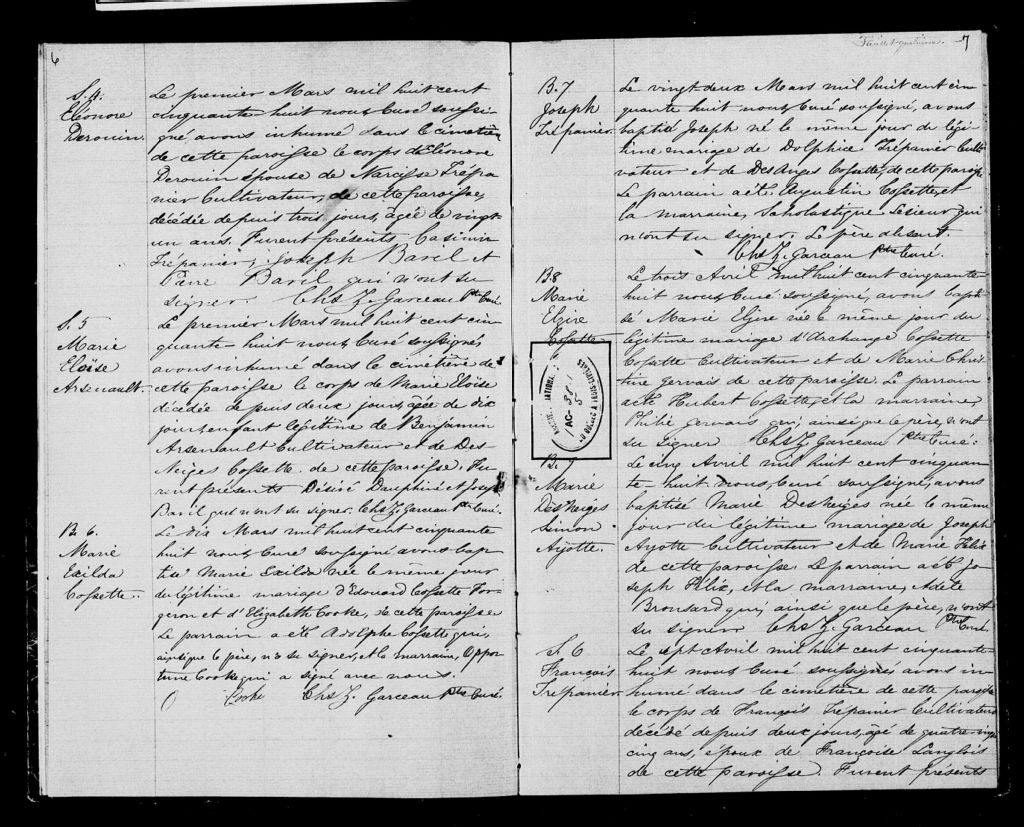 6
S. 4.
Eléonore
Derouin.
Le premier Mars mil huit cent
cinquante huit nous Curé soussi-
gné, avons inhumé dans le cimetière
de cette paroisse le corps d'Eléonore
Derouin épouse de Narcisse Trépa-
nier Cultivateur, de cette paroisse,
décédée depuis trois jours, agée de vingt
un ans. Furent présents Casimir
Trépanier, Joseph Baril et
Baril qui n'ont su
signer. Chs Z. Garceau Ptre Curé.
S. 5
Marie
Eloïse
Arsenault.
Le premier Mars mil huit cent cin
quante huit nous Curé soussigné,
avons inhumé dans le cimetière de
cette paroisse le corps de Marie Eloïse
décédée depuis deux jours, agée de dix
jours enfant légitime de Benjamin
Arsenault Cultivateur et de Des
Neiges Cossette de cette paroisse. Fu
rent présents Désiré Dauphiné et Joseph
Baril qui n'ont su signer. Chs Z. Garceau Ptre Curé.
B. 6.
Marie
Exilda
Cossette.
Le dix Mars mil huit cent cinquante
huit nous Curé soussigné avons bap
tisé Marie Exilda née le même jour
du légitime mariage d'Edouard Cossette For
geron et d'Elizabeth Cooke, de cette paroisse
Le parrain a été Adolphe Cossette qui,
ainsi que le père, n'a su signer, et la marraine, Oppor
tune Cooke qui a signé avec nous.
Cooke Chs Z. Garceau Ptre Curé.
Feuillet quatrième. 7
B. 7
Joseph
Trépanier
Le vingt deux Mars mil huit cent cin
quante huit nous Curé soussigné, avons
baptisé Joseph né le même jour du légi-
time mariage de Dolphice Trépanier Culti
vateur et de DesAnges Cossette, de cette paroisse
Le parrain a été Augustin Cossette, et
la marraine, Scholastique Lesieur qui
n'ont su signer. Le père absent
Chs Z. Garceau Ptre Curé.
B8
Marie
Elzire
Cossette
Le trois Avril mil huit cent cinquante
huit nous Curé soussigné, avons bapti
sé Marie Elzire née le même jour du
légitime mariage d'Archange Cossette
Cossette Cultivateur et de Marie Chris
tine Gervais de cette paroisse. Le parrain
a été Hubert Cossette, et la marraine,
Philie Gervais qui, ainsi que le père, n'ont
su signer Chs Z. Garceau Ptre Curé.
B. 9
Marie
DesNeiges
Simon
Ayotte.
Le cinq Avril mil huit cent cinquan
te huit nous, Curé soussigné, avons
baptisé Marie DesNeiges née le même
jour du légitime mariage de Joseph
Ayotte Cultivateur et de Marie Félix
de cette paroisse. Le parrain a été Jo
seph Félix, et la marraine, Adèle
Bronsard qui, ainsi que le père, n'ont
su signer Chs Z. Garceau Ptre Curé.
S. 6
François
Trépanier
Le sept Avril mil huit cent cinquante
huit nous Curé soussigné, avons in
humé dans le cimetière de cette paroisse
le corps de François Trépanier Cultivateur
décédé depuis deux jours, âgé de quatre vingt
cinq ans, époux de Françoise Langlois
de cette paroisse. Furent présents